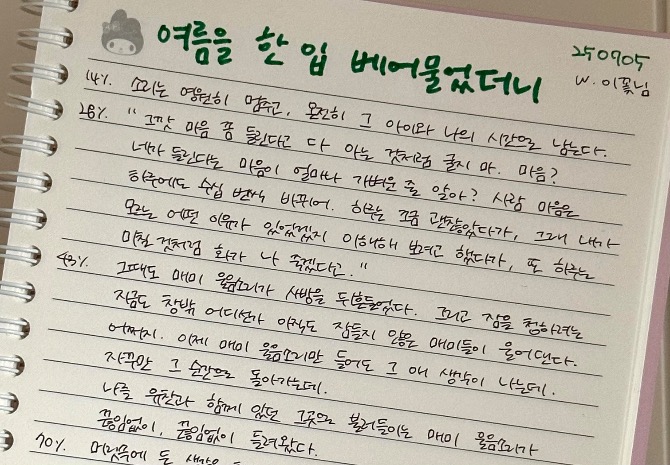 여름을 한 입 베어물었더니
250705
W. 이꽃님
14%. 소리는 영원히 멈추고, 온전히 그 아이와 나의 시간으로 남는다.
28%. "그깟 마음 좀 들린다고 다 아는 것처럼 굴지 마. 마음?
네가 들린다는 마음이 얼마나 가벼운 줄 알아? 사람 마음은
하루에도 수십 번씩 바뀌어. 하루는 조금 괜찮았다가, 그래 내가
모르는 어떤 이유가 있었겠지 이해해 보려고 했다가, 또 하루는
미칠 것처럼 화가 나 죽겠다고."
43%. 그때도 매미 울음소리가 사방을 뒤흔들었다. 그리고 잠을 청하려는
지금도 창밖 어디선가 아직도 잠들지 않은 매미들이 울어댄다.
어쩌지. 이제 매미 울음소리만 들어도 그 애 생각이 나는데.
자꾸만 그 순간으로 돌아가는데.
나를 유찬과 함께 있던 그곳으로 불러들이는 매미 울음소리가
끊임없이, 끊임없이 들려왔다.
70%. 머릿속에 든